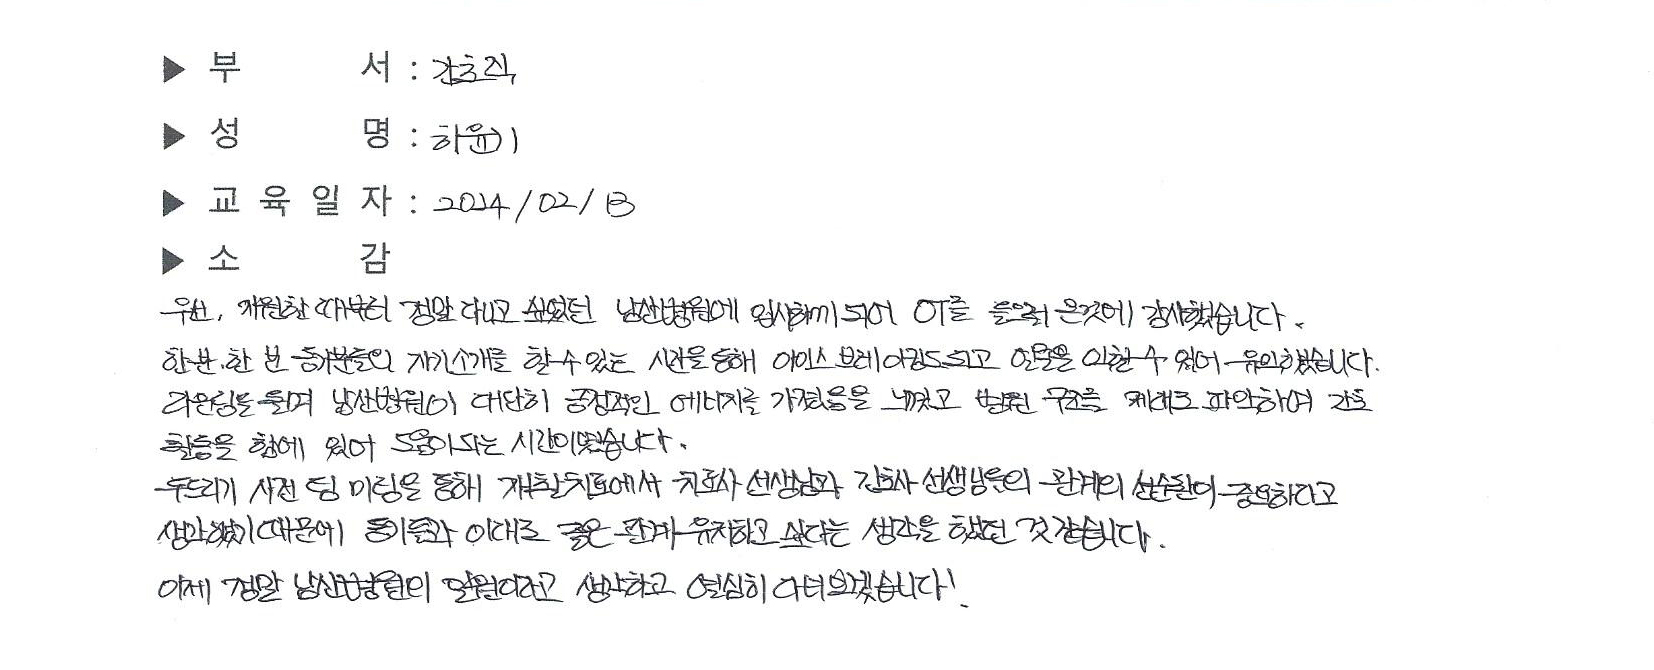 ▶ 부 서 : 간호직
▶ 성 명 : 하윤이
▶ 교 육 일 자 : 2024/02/13
▶ 소 감
우선, 개원할 때부터 정말 다니고 싶었던 남산병원에 입사하게 되어 OT를 들으러 온것에 감사했습니다.
한분, 한 분 동기분들의 자기소개를 할 수 있는 시간을 통해 아이스 브레이킹도 되고 얼굴을 익힐 수 있어 유익했습니다.
라운딩을 돌며 남산병원이 대단히 긍정적인 에너지를 가졌음을 느꼈고 병원 구조를 제대로 파악하여 간호
활동을 함에 있어 도움이 되는 시간이었습니다.
두드리기 사전 팀 미팅을 통해 재활치료에서 치료사 선생님과 간호사 선생님들의 관계의 선순환이 중요하다고
생각했기 때문에 동기들과 이대로 좋은 관계 유지하고 싶다는 생각을 했던 것 같습니다.
이제 정말 남산병원의 일원이라고 생각하고 열심히 다녀보겠습니다!